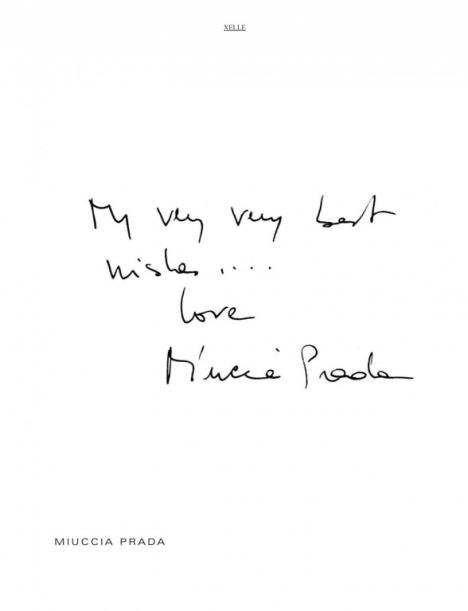 XELLE
My very very best
wishes....
love
Miuccia Prada
MIUCCIA PRADA